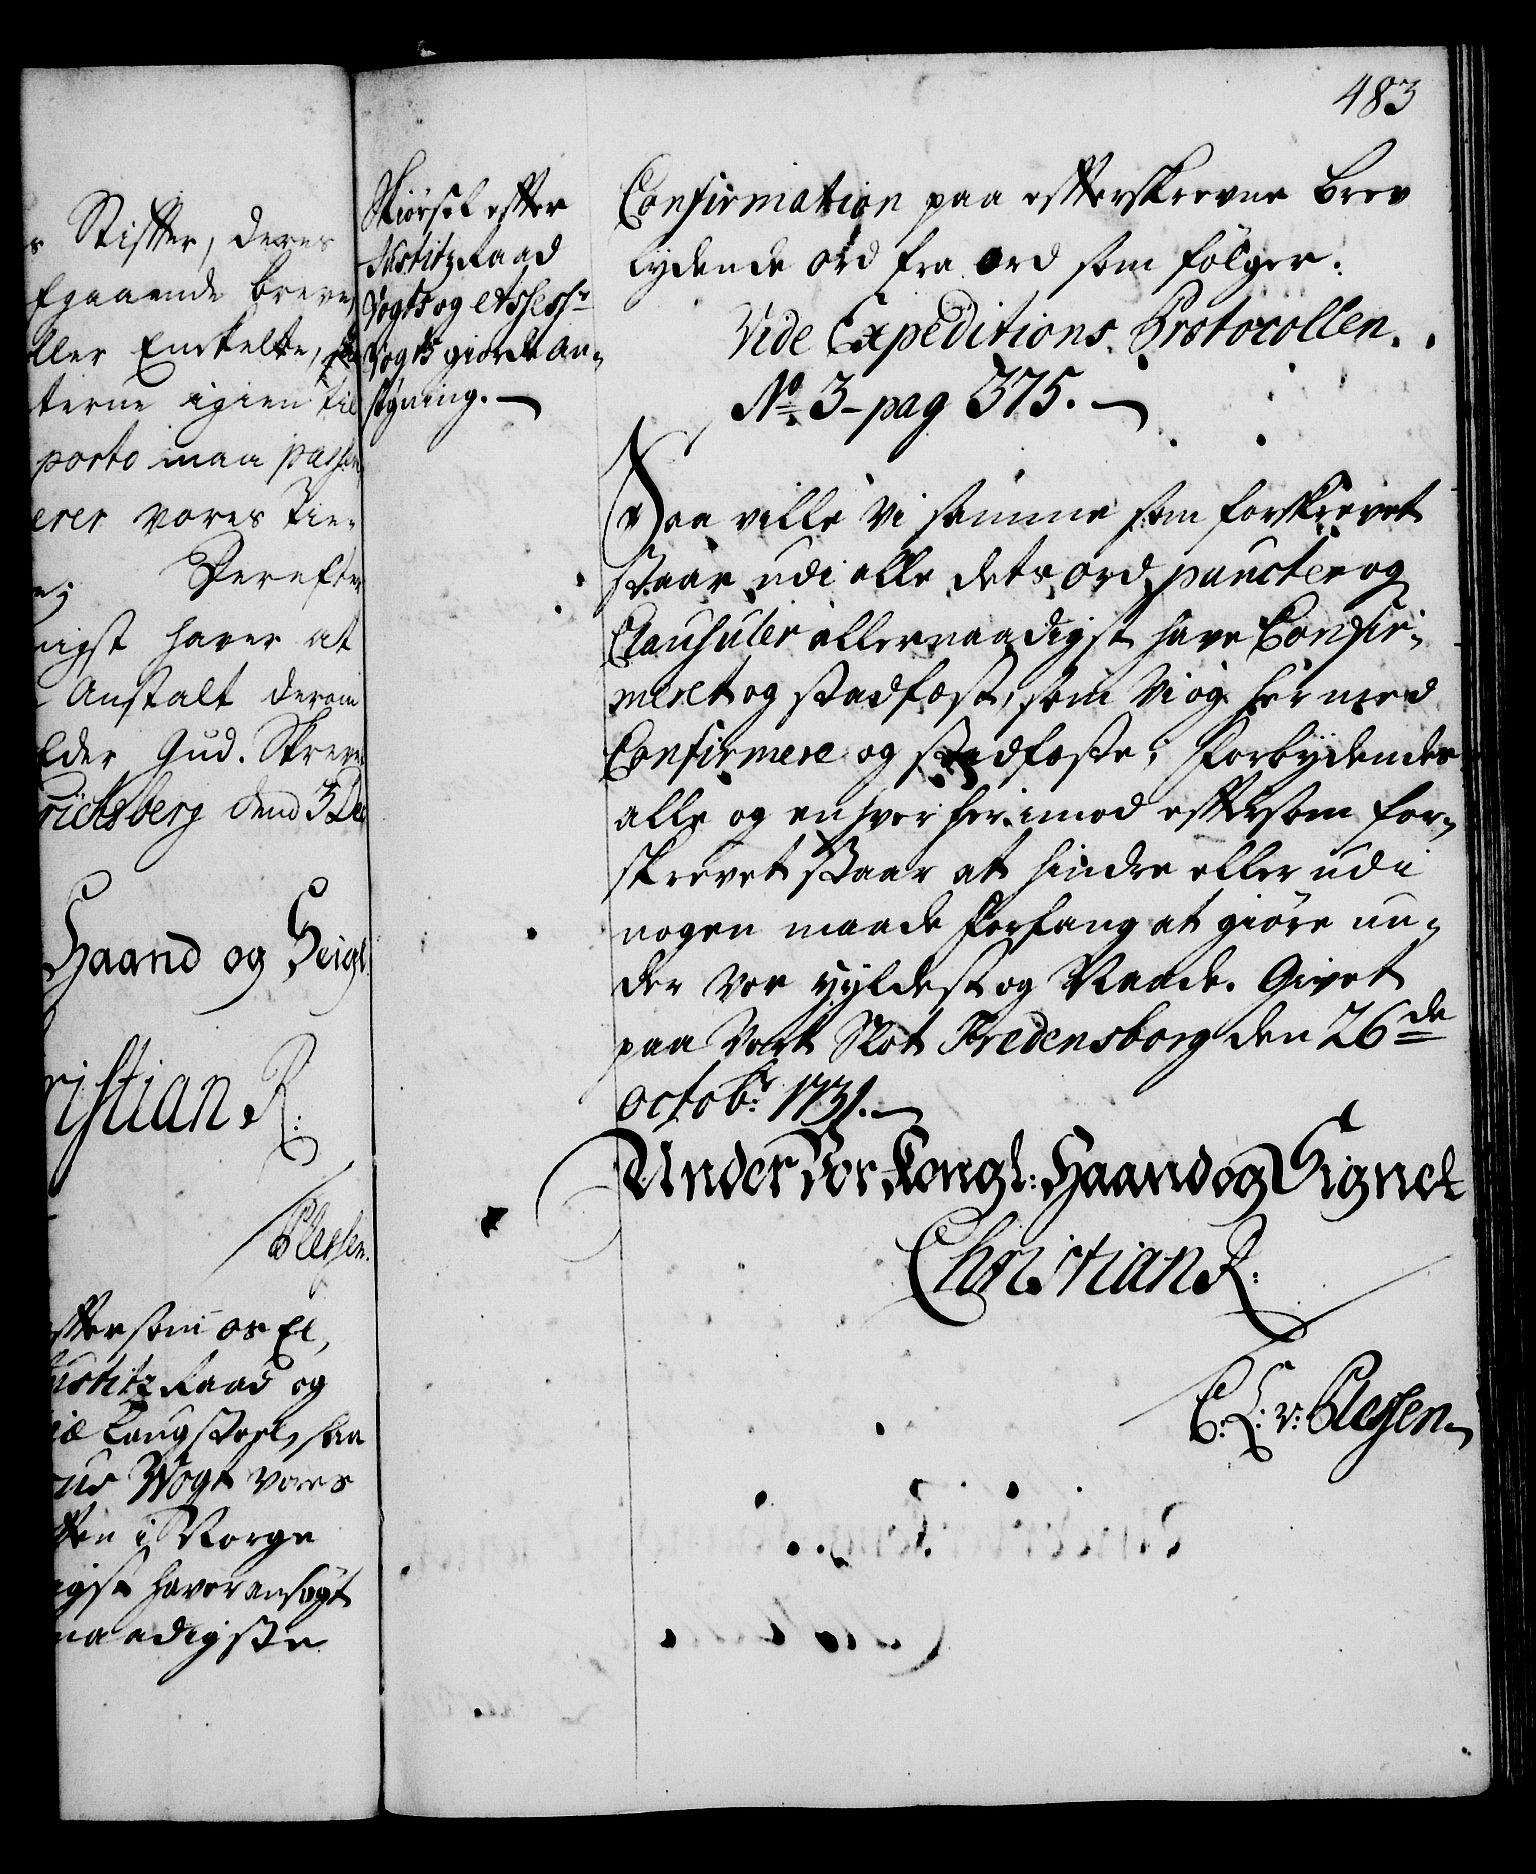 483
s Stifter, deres
fgaaende breve,
ller Enckelte,
terne igien til
porto maa passe
erer vores Tie-
Derefter
nigst haver at
Anstalt derom
lder Gud. Skrev
richsberg dend 3 Dec
Haand og Seigl.
ristian R:
Plessen.
fftersom os El,
ustitz Raad og
iæ Laugstoel, saa
rus Vogt vores
tten i Norge
igst haver ansøgt
naadigste
Skiørsel effter
Justitz Raad
Vogts og Assess:r
Vogts giorde An-
søgning.
Confirmation paa effterskrevne brev
lydende ord fra ord som fölger:
Vide Expeditions Protocollen.
No 3 - pag 375.
Daa ville Vi samme som forskrevet
staar udi alle dets ord, puncter og
Clausuler allernaadigst have Confir-
meret og stadfæst, som Vi og hermed
Confirmere og stadfæste; Forbydendes
alle og enhver herimod effter som for-
skrevet staar at hindre eller udi
nogen maade Forfang at giöre un-
der Vor Hyldest og Naade. Givet
paa Vort Slot Fredensborg den 26de
octobr: 1731.
Under Vor Kongl: Haand og Signet
Christian R:
C: A: v: Plessen